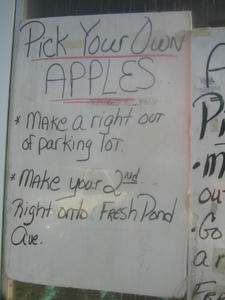 Pick Your Own
APPLES
* MAKE a right out
of parking lot.
* MAKE your 2nd
Right onto Fresh Pond
Ave.
A
P
· M
out
· Go
a r